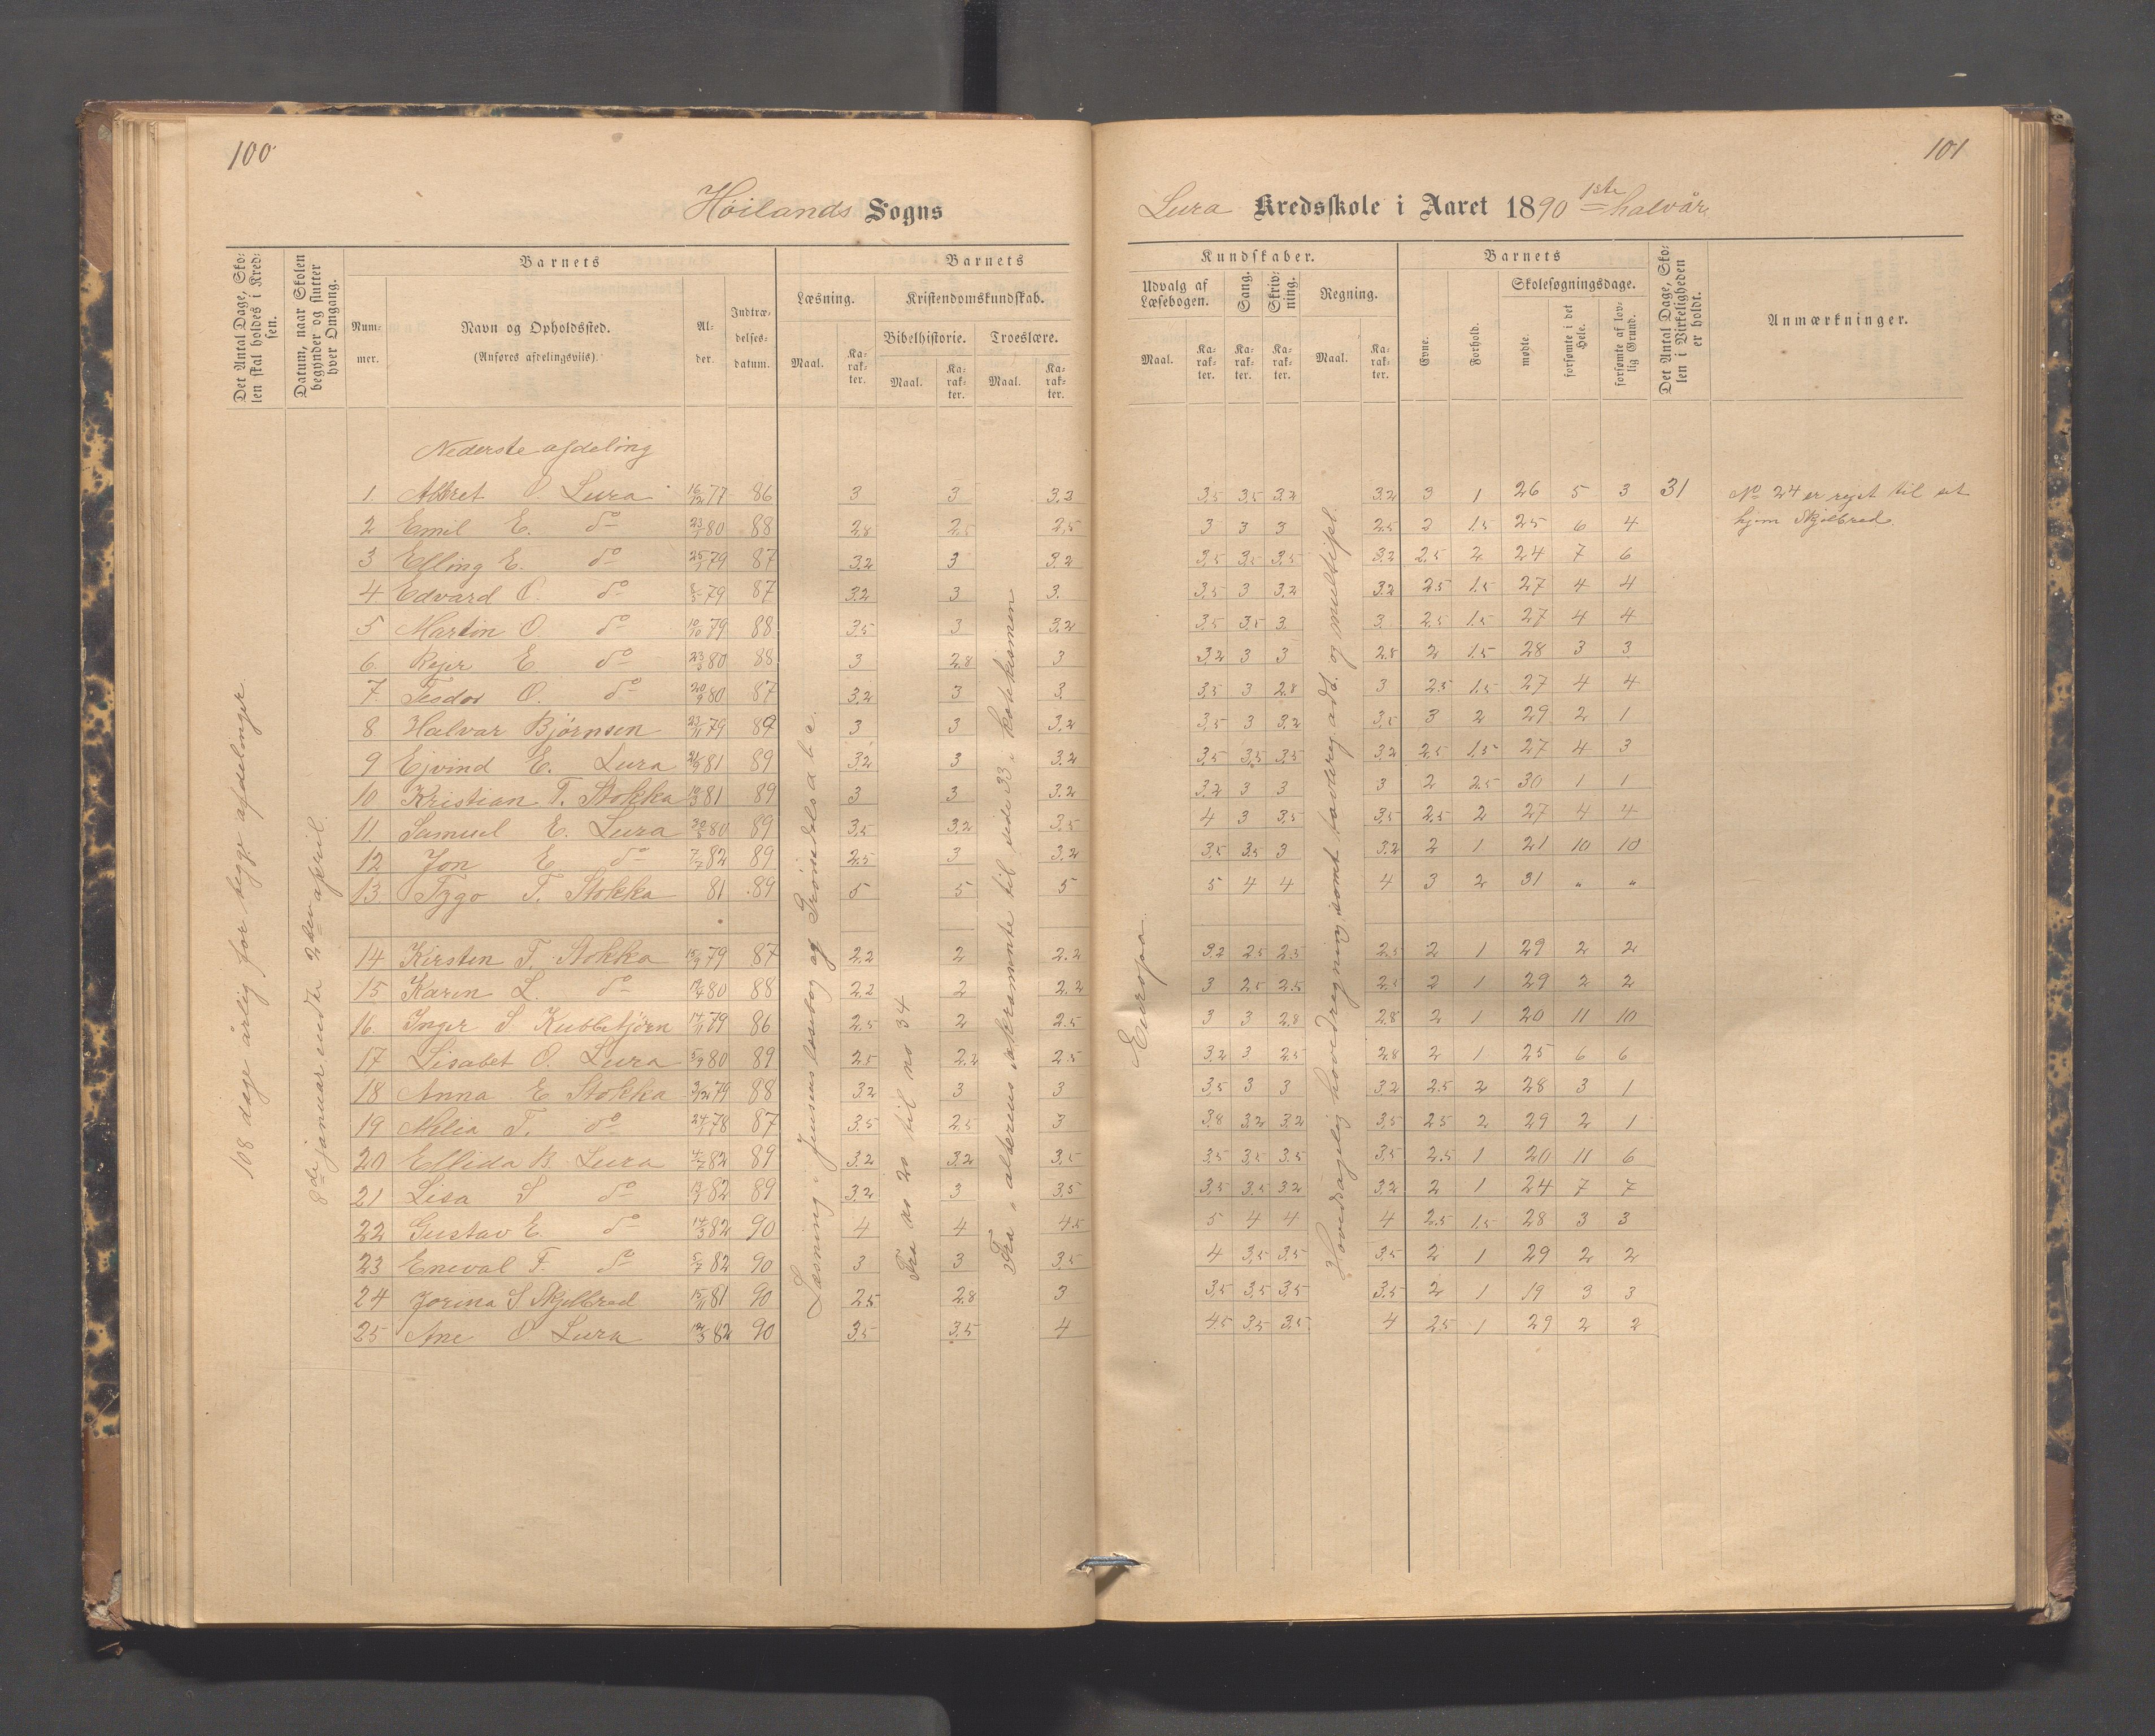 100
Höilands Sogns
Det Antal Dage, Skolen skal holdes i Kredsen.
Datum, naar Skolen begynder og slutter hver Omgang.
Barnets
Nummer.
Navn og Opholdssted.
(Anføres afdelingsviis).
Alder.
Indtrædelsesdatum.
Barnets
Læsning.
Maal.
Karakter.
Kristendomskundskab.
Bibelhistorie.
Maal.
Karakter.
Troeslære.
Maal.
Karakter.
108 dage årlig for begge afdelinger.
8de januar endte 2den april.
Læsning i Jensens læsebog og Grönsdals a b c.
Fra no 20 til no 34
Fra alterens sakramente til side 33 i katekismen
Nederste afdeling
1. Albret O. Lura 16/12 77 86 3 3 3.2
2 Emil E. do 80 88 2.8 2.5 2.5
3 Elling E. do 79 87 3.2 3 3.2
4 Edvard O. do 79 87 3.2 3 3.
5 Martin O. do 10/10 79 88 3.5 3 3.2
6. Rejer E do 80 88 3 2.8 3
7. Tesdor O. do 20/9 80 87 3.2 3 3
8 Halvar Bjørnsen 23/11 79 89 3 3 3.2
9 Ejvind E. Lura 81 89 3.2 3 3.2
10 Kristian T. Stokka 81 89 3 3 3.2
11. Samuel E. Lura 80 89 3.5 3.2 3.5
12 Jon E do 7/7 82 89 2.5 3 3.2
13. Tygo T. Stokka 81 89 5 5 5
14 Kirsten T. Stokka 15/9 79 87 2.2 2 2.2
15 Karen L. do 80 88 2.2 2 2.2
16. Inger S Kubbetjörn 79 86 2.5 2 2.5
17 Lisabet O. Lura 80 89 2.5 2.2 2.5
18 Anna E Stokka 3/12 79 88 3.2 3 3
19 Milia T. do 78 87 3.5 2.5 3
20 Ellida B. Lura 82 89 3.2 3.2 3.5
21 Lisa S do 82 89 3.2 3 3.5
22 Gustav E. do 14/3 82 90 4 4 4.5
23 Eneval T. do 5/7 82 90 3 3 3.5
24 Jorina S Skjelbred 15/11 81 90 2.5 2.8 3
25 Ane O Lura 82 90 3.5 3.5 4
101
Lura Kredsskole i Aaret 1890 1ste halvår.
Kundskaber.
Udvalg af Læsebogen.
Maal.
Karakter.
Sang.
Karakter.
Skrivning.
Karakter.
Regning.
Maal.
Karakter.
Barnets
Evne.
Forhold.
Skolesøgningsdage.
mødte.
forsømte i det Hele.
forsømte af lovlig Grund.
Det Antal Dage, Skolen i Virkeligheden er holdt.
Anmærkninger.
Europa
Hovedsagelig hovedregning samt tavlereg. add. og multipl.
3.5 3.5 3.2 3.2 3 1 26 5 3 31
No 24 er rejst til sit
hjem Skjelbred.
3 3 3 2.5 2 1.5 25 6 4
3.5 3.5 3.5 3.2 2.5 2 24 7 6
3.5 3 3.2 3.2 2.5 1.5 27 4 4
3.5 3.5 3. 3. 2.5 1.5 27 4 4
3.2 3 3 2.8 2 1.5 28 3 3
3.5 3 2.8 3 2.5 1.5 27 4 4
3.5 3 3.2 3.5 3 2 29 2 1
3.5 3.5 3.5 3.2 2.5 1.5 27 4 3
3.2 3 3 3 2 2.5 30 1 1
4 3 3.5 3.5 2.5 2 27 4 4
3.5 3.5 3 3.2 2 1 21 10 10
5 4 4 4 3 2 31 " "
3.2 2.5 2.5 2.5 2 1 29 2 2
3 2.5 2.5 2.5 2 1 29 2 2
3 3 2.8 2.8 2 1 20 11 10
3.2 3 2.5 2.8 2 1 25 6 6
3.5 3 3 3.2 2.5 2 28 3 1
3.8 3.2 3.2 3.5 2.5 2 29 2 1
3.5 3.5 3.5 3.5 2.5 1 20 11 6
3.5 3.5 3.2 3.2 2 1 24 7 7
5 4 4 4 2.5 1.5 28 3 3
4 3.5 3.5 3.5 2 1 29 2 2
3.5 3.5 3.5 3.5 2 1 19 3 3
4.5 3.5 3.5 4 2.5 1 29 2 2